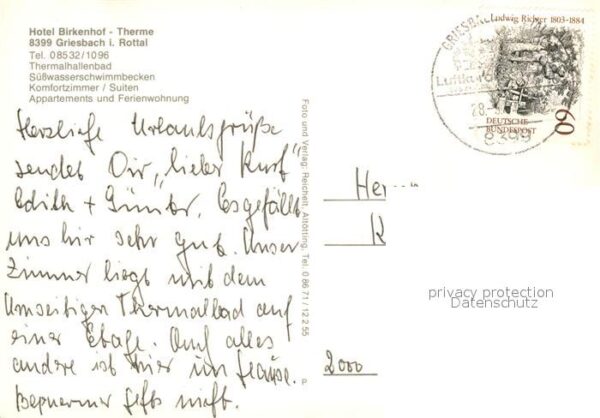 Hotel Birkenhof - Therme
8399 Griesbach i. Rottal
Tel. 08532/1096
Thermalhallenbad
Süßwasserschwimmbecken
Komfortzimmer / Suiten
Appartements und Ferienwohnung
Herzliche Urlaubsgrüße
sendet Dir, lieber Kurt
Edith + Günter. Es gefällt
uns hier sehr gut. Unser
Zimmer liegt mit dem
Umseitigen Thermalbad auf
einer Etage. Auch alles
andere ist hier im Hause.
Bequemer gehts nicht.
Foto und Verlag: Reichelt, Altötting, Tel. 0 86 71 / 12 2 55
P
Ludwig Richter 1803-1884
DEUTSCHE
BUNDESPOST
60
GRIESBACH
Luftkurort
28.
8399
Herrn
K
2000
privacy protection
Datenschutz